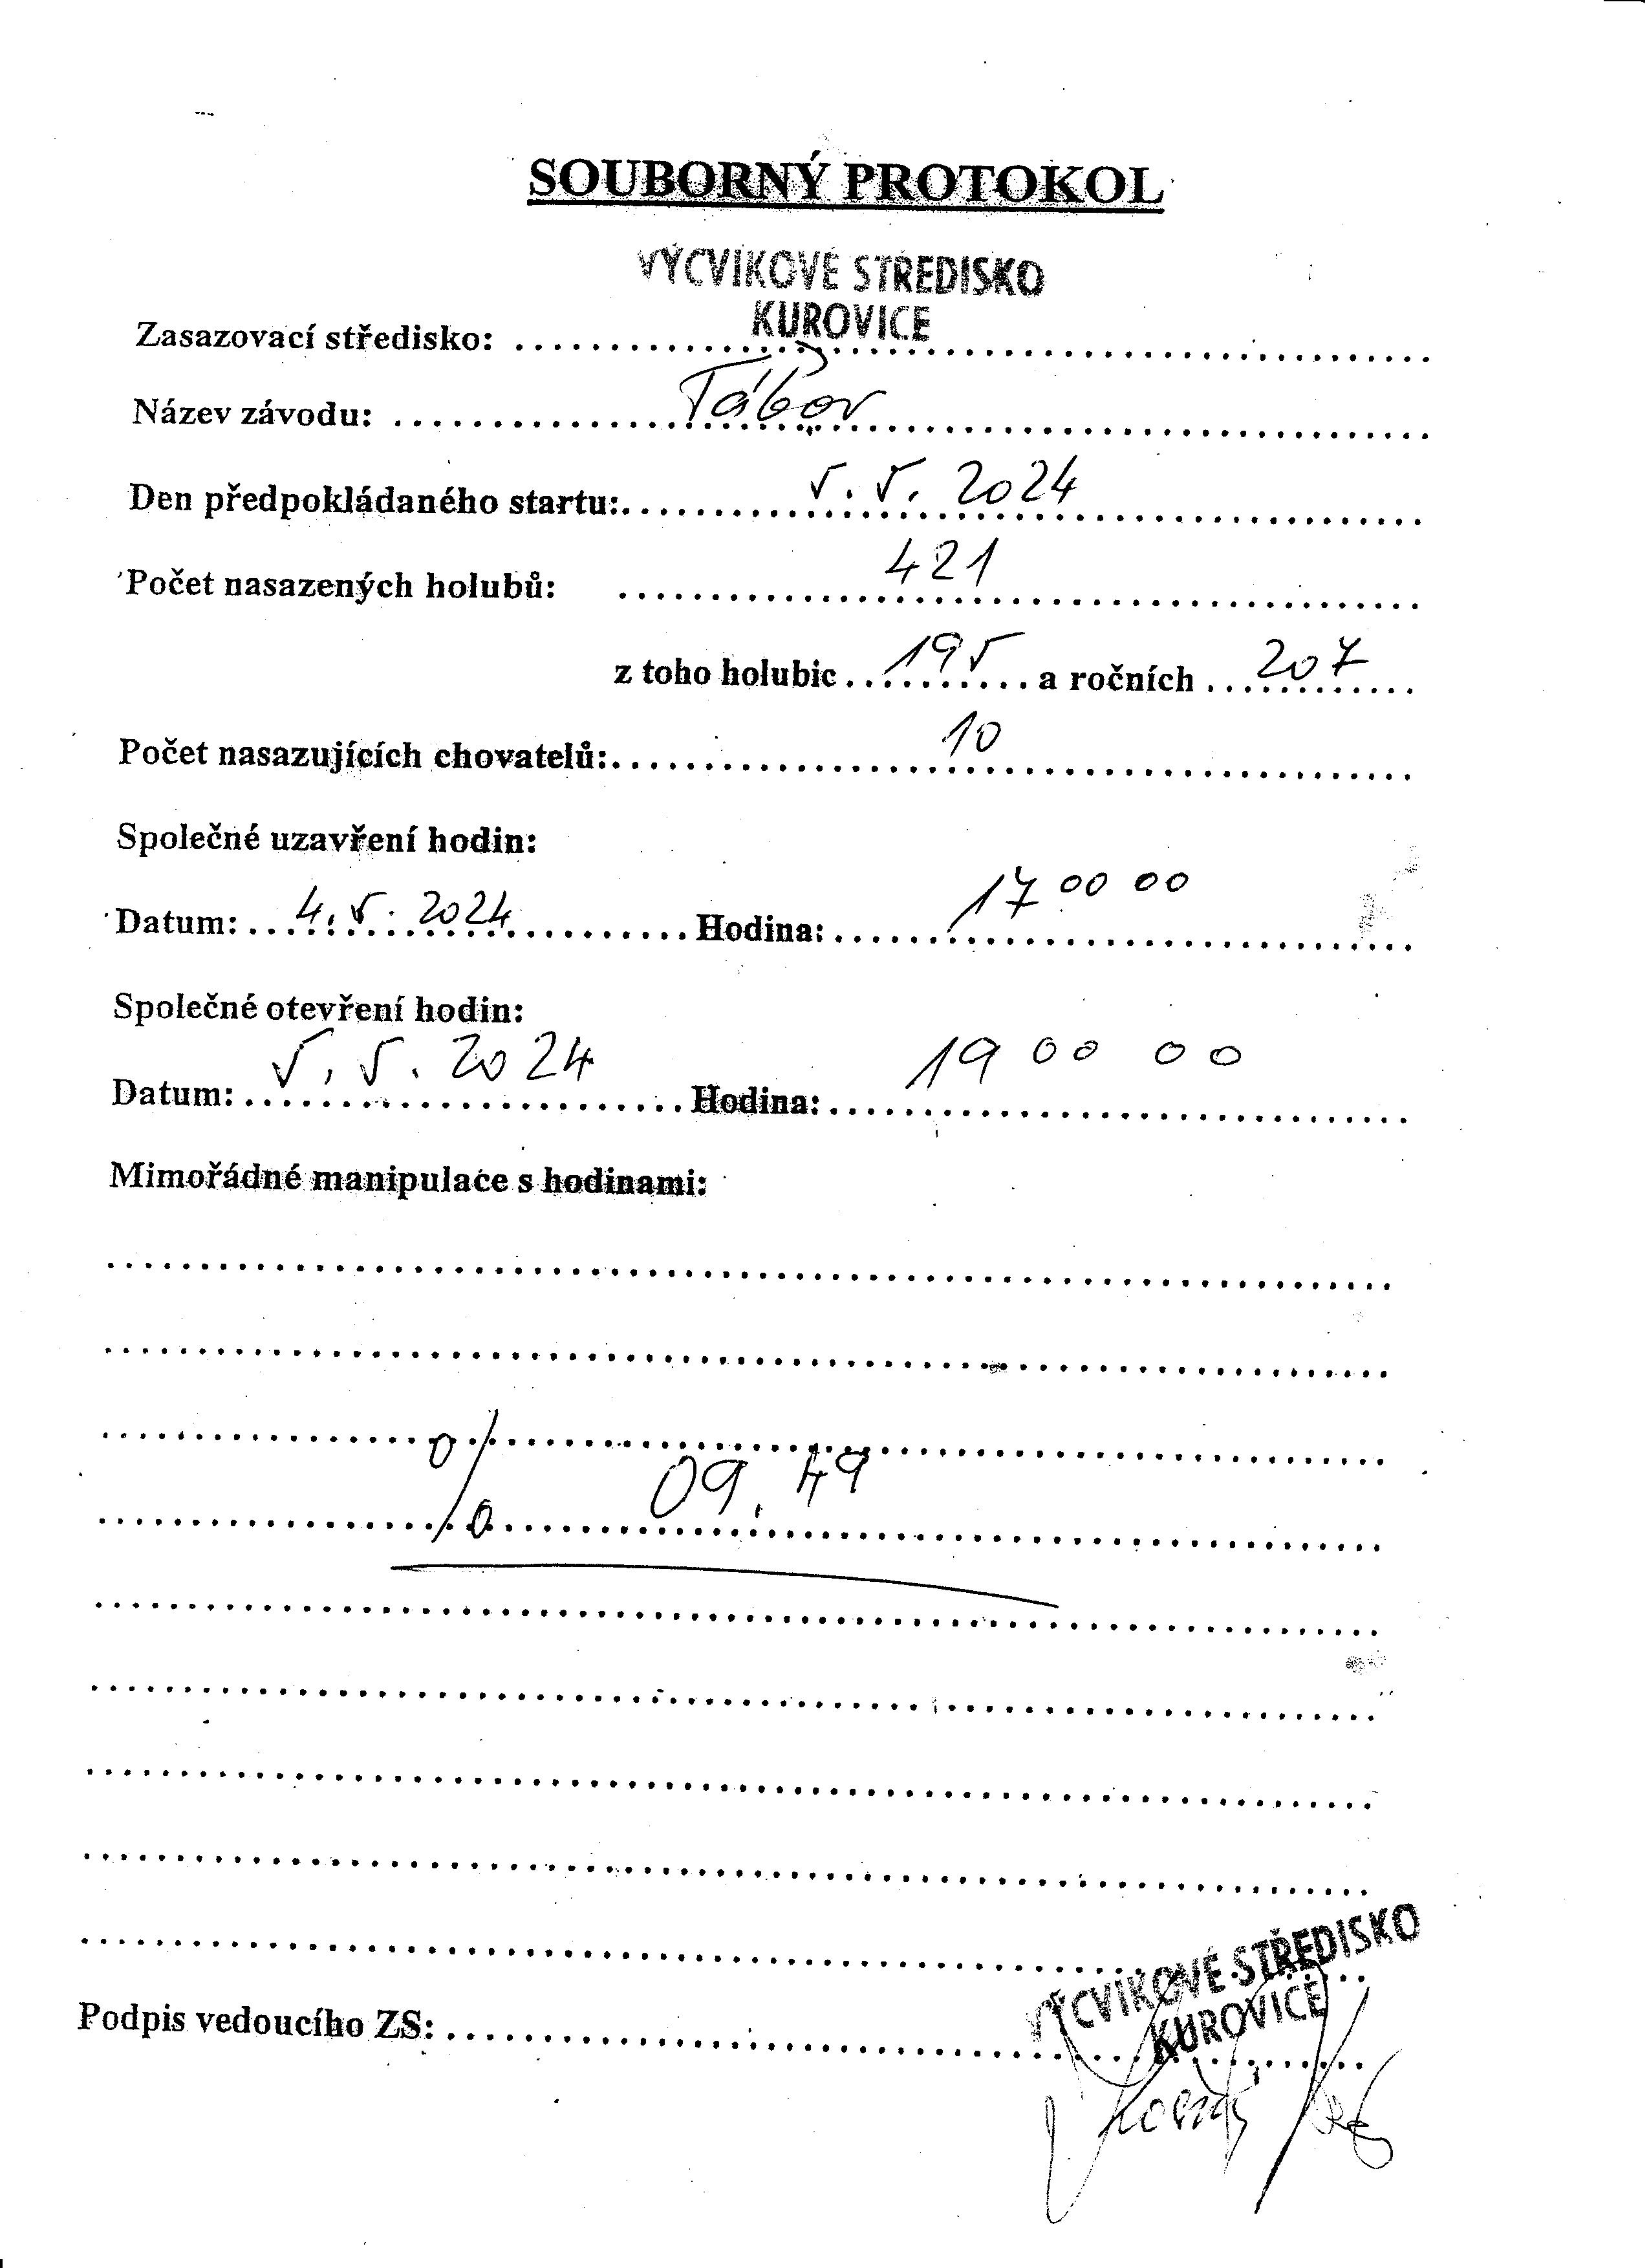 SOUBORNÝ PROTOKOL
VÝCVIKOVÉ STŘEDISKO
KUROVICE
Zasazovací středisko:
Název závodu: Tábor
Den předpokládaného startu: 5. 5. 2024
Počet nasazených holubů: 421
z toho holubic 195 a ročních 207
Počet nasazujících chovatelů: 10
Společné uzavření hodin:
Datum: 4. 5. 2024 Hodina: 17 00 00
Společné otevření hodin:
Datum: 5. 5. 2024 Hodina: 19 00 00
Mimořádné manipulace s hodinami:
0/0 09.49
VÝCVIKOVÉ STŘEDISKO
KUROVICE
Podpis vedoucího ZS: